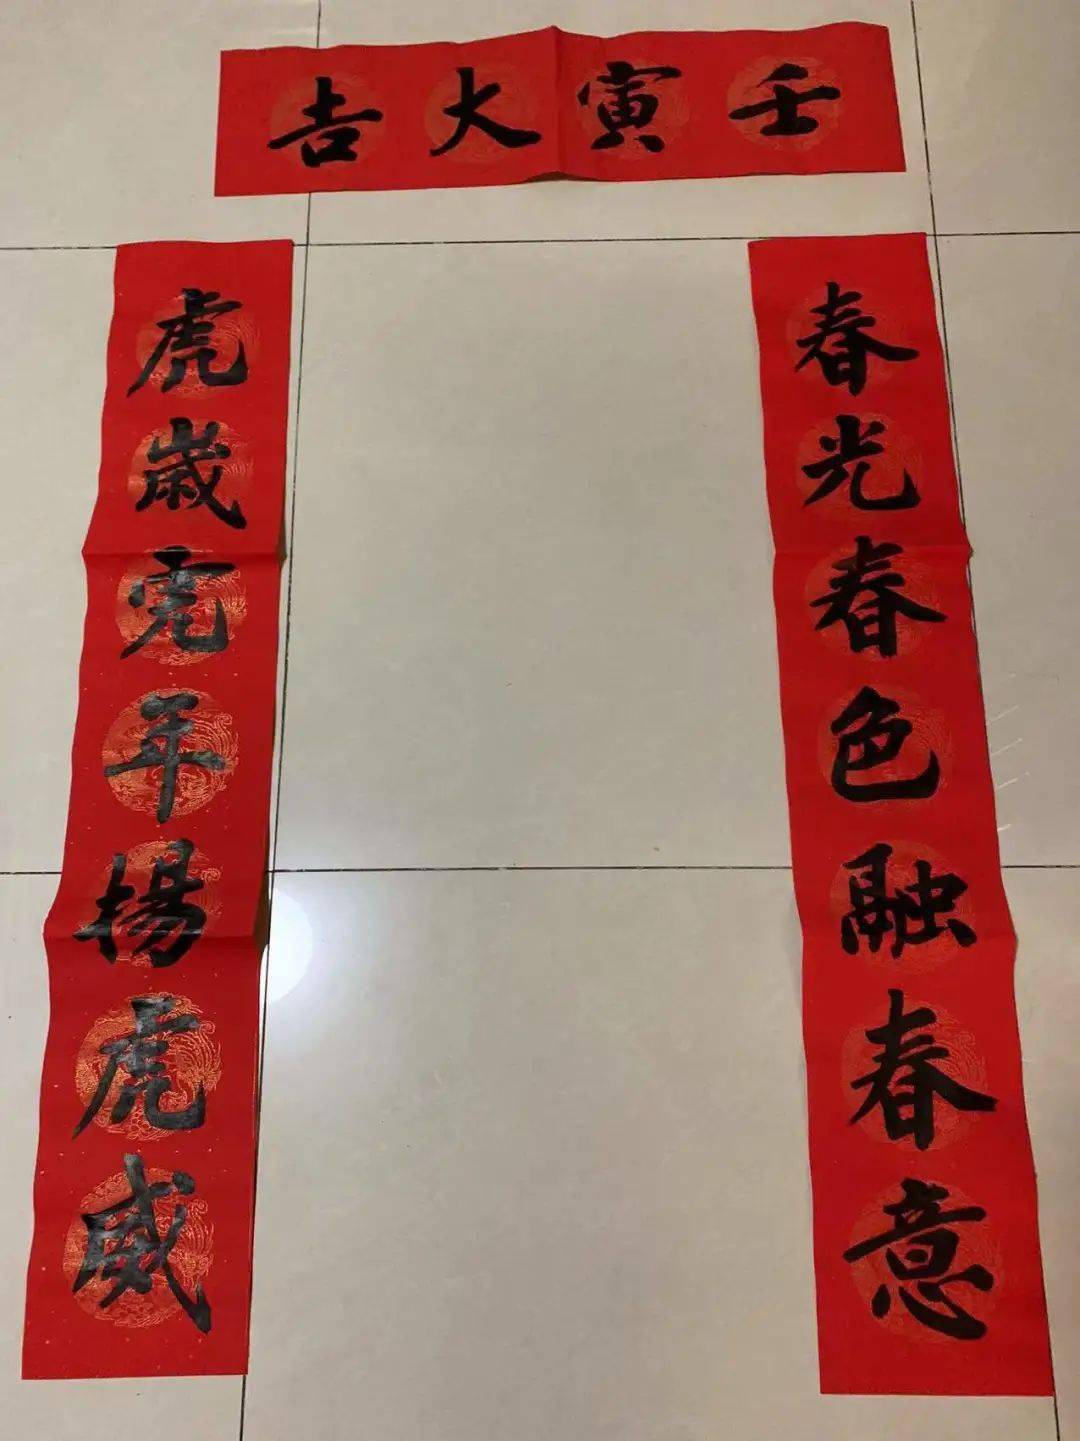 壬寅大吉
春光春色融春意
虎歲虎年揚虎威